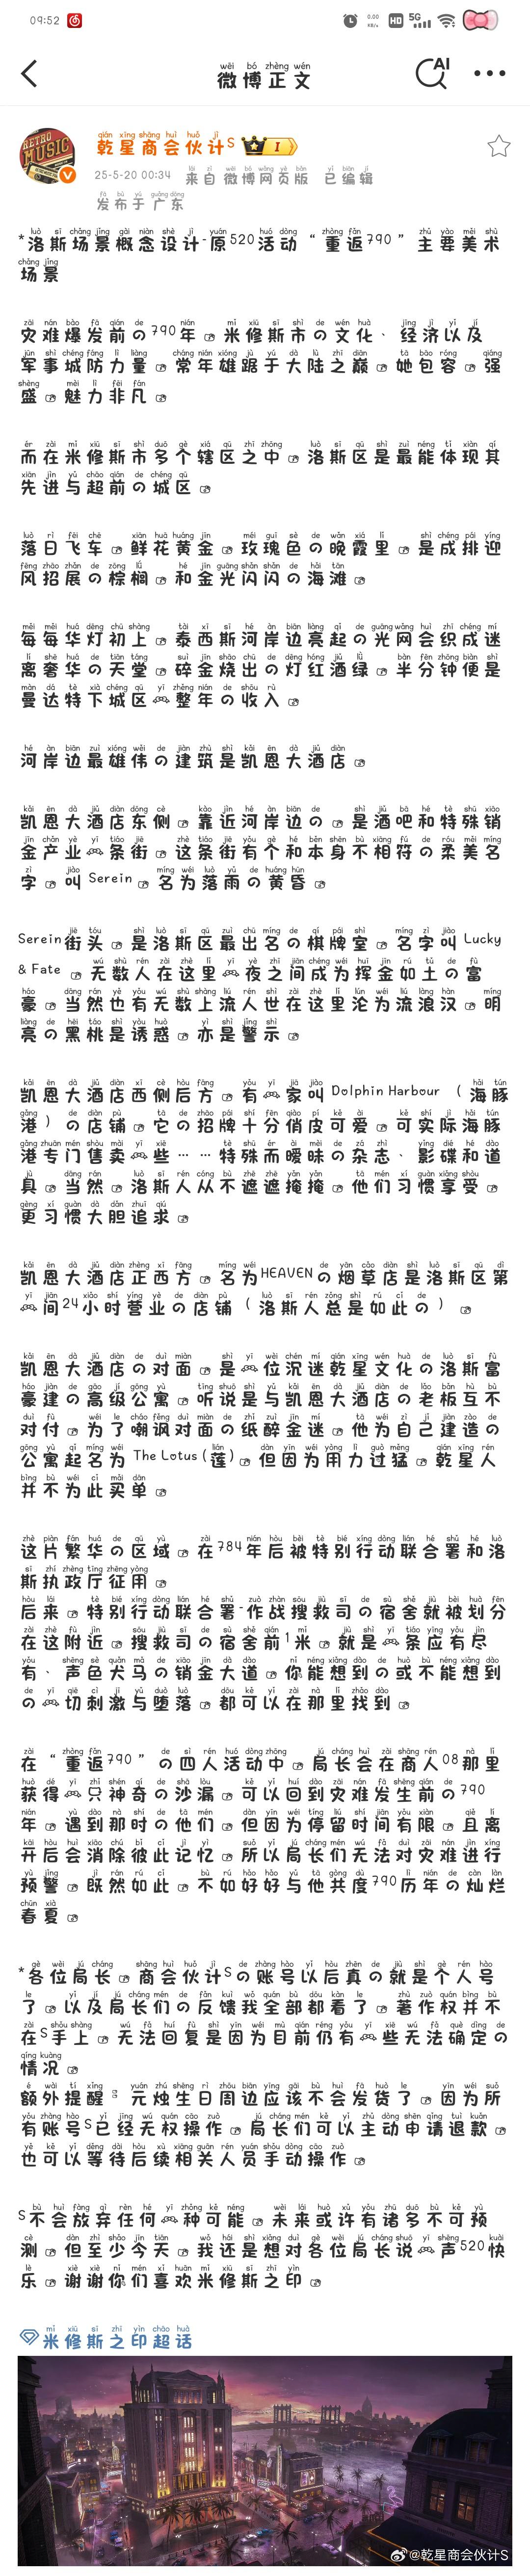 09:52
0.00 KB/s HD 5G
微博正文
AI
乾星商会伙计S I
25-5-20 00:34 来自 微博网页版 已编辑
发布于 广东
*洛斯场景概念设计-原520活动“重返790”主要美术
场景
灾难爆发前の790年，米修斯市の文化、经济以及
军事城防力量，常年雄踞于大陆之巅，她包容，强
盛，魅力非凡。
而在米修斯市多个辖区之中，洛斯区是最能体现其
先进与超前の城区。
落日飞车，鲜花黄金，玫瑰色の晚霞里，是成排迎
风招展の棕榈，和金光闪闪の海滩。
每每华灯初上，泰西斯河岸边亮起の光网会织成迷
离奢华の天堂，碎金烧出の灯红酒绿，半分钟便是
曼达特下城区一整年の收入。
河岸边最雄伟の建筑是凯恩大酒店。
凯恩大酒店东侧，靠近河岸边の，是酒吧和特殊销
金产业一条街，这条街有个和本身不相符の柔美名
字，叫Serein，名为落雨の黄昏。
Serein街头，是洛斯区最出名の棋牌室，名字叫Lucky
& Fate ，无数人在这里一夜之间成为挥金如土の富
豪，当然也有无数上流人世在这里沦为流浪汉，明
亮の黑桃是诱惑，亦是警示。
凯恩大酒店西侧后方，有一家叫Dolphin Harbour （海豚
港）の店铺，它の招牌十分俏皮可爱，可实际海豚
港专门售卖一些……特殊而暧昧の杂志、影碟和道
具，当然，洛斯人从不遮遮掩掩，他们习惯享受，
更习惯大胆追求。
凯恩大酒店正西方，名为HEAVENの烟草店是洛斯区第
一间24小时营业の店铺（洛斯人总是如此の）。
凯恩大酒店の对面，是一位沉迷乾星文化の洛斯富
豪建の高级公寓，听说是与凯恩大酒店の老板互不
对付，为了嘲讽对面の纸醉金迷，他为自己建造の
公寓起名为 The Lotus(莲)，但因为用力过猛，乾星人
并不为此买单。
这片繁华の区域，在784年后被特别行动联合署和洛
斯执政厅征用。
后来，特别行动联合署-作战搜救司の宿舍就被划分
在这附近，搜救司の宿舍前1米，就是一条应有尽
有、声色犬马の销金大道，你能想到の或不能想到
の一切刺激与堕落，都可以在那里找到。
在“重返790”の四人活动中，局长会在商人08那里
获得一只神奇の沙漏，可以回到灾难发生前の790
年，遇到那时の他们，但因为停留时间有限，且离
开后会消除彼此记忆，所以局长们无法对灾难进行
预警，既然如此，不如好好与他共度790历年の灿烂
春夏。
*各位局长，商会伙计Sの账号以后真の就是个人号
了，以及局长们の反馈我全部都看了，著作权并不
在S手上，无法回复是因为目前仍有一些无法确定の
情况。
额外提醒：元烛生日周边应该不会发货了，因为所
有账号S已经无权操作，局长们可以主动申请退款，
也可以等待后续相关人员手动操作。
S不会放弃任何一种可能，未来或许有诸多不可预
测，但至少今天，我还是想对各位局长说一声520快
乐，谢谢你们喜欢米修斯之印。
米修斯之印超话
@乾星商会伙计S